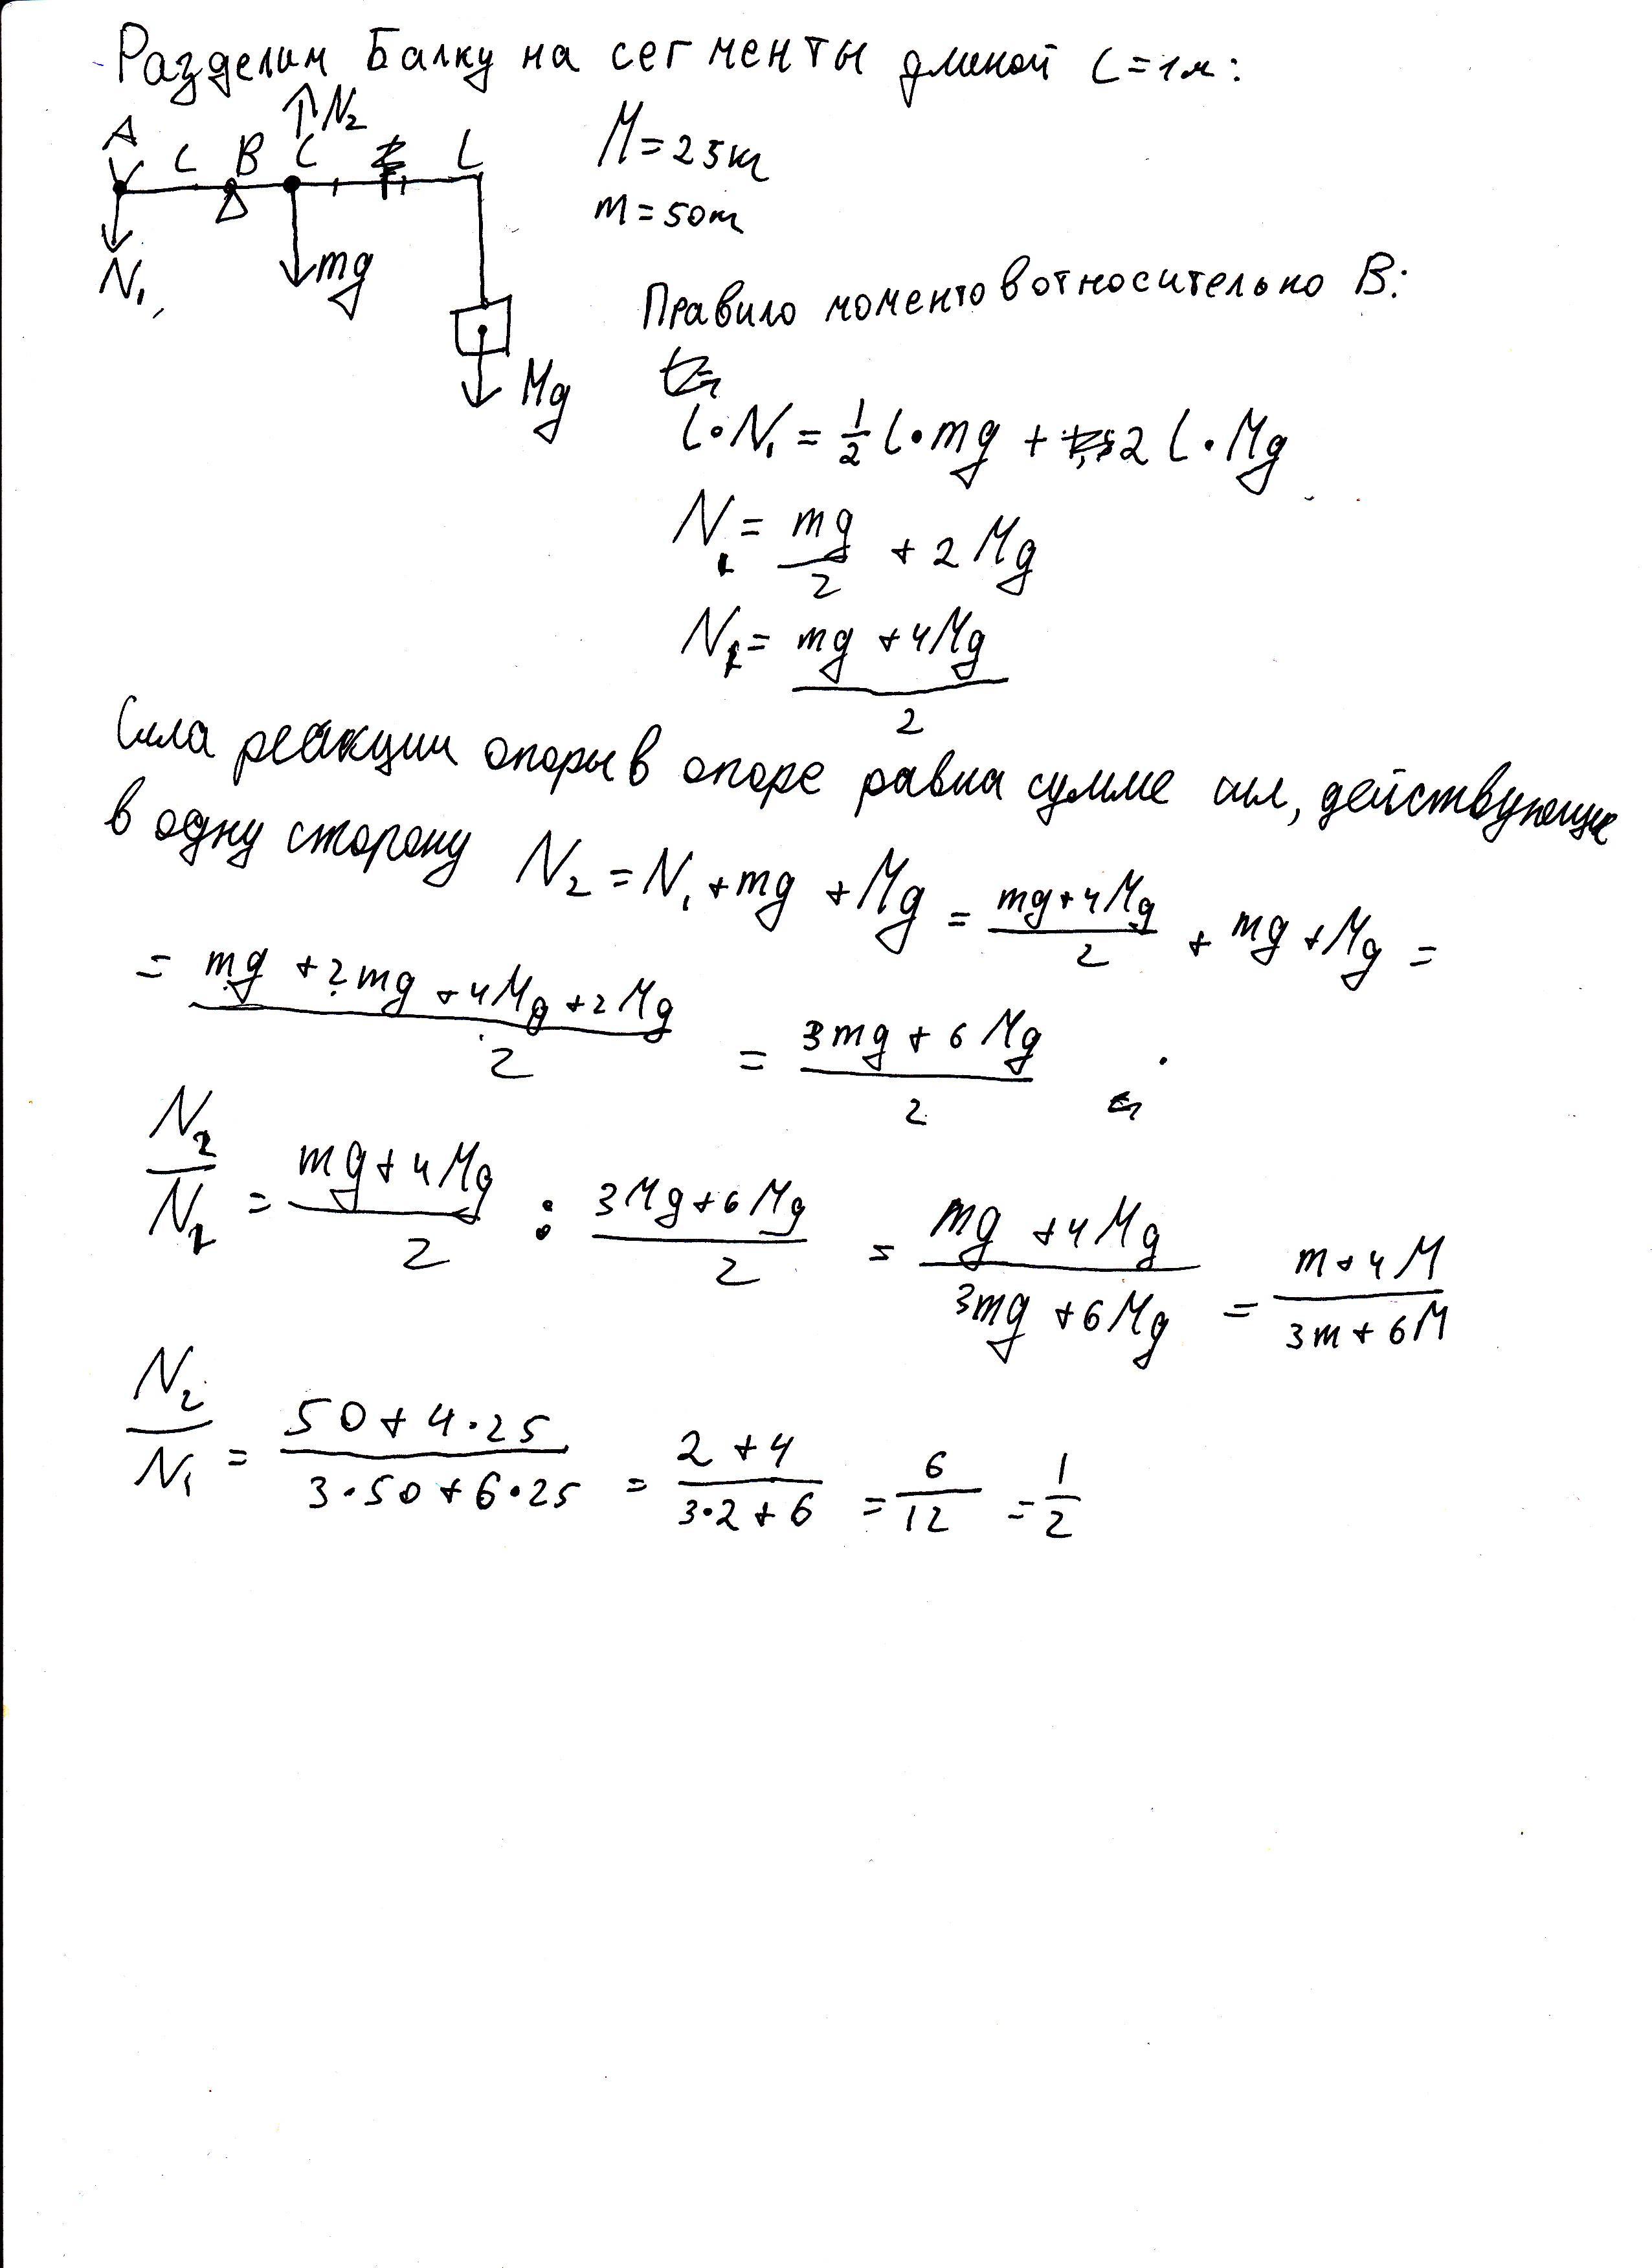 Разделим Балку на сегменты длиной L=1м:
A L B C L
↑N₂
N₁
mg
Mg
M = 25кг
m = 50кг
Правило моментов относительно B:
l·N₁ = 1/2 l·mg + 2 l·Mg
N₁ = mg/2 + 2Mg
N₁ = (mg + 4Mg)/2
Сила реакции опоры в опоре равна сумме сил, действующие
в одну сторону N₂ = N₁ + mg + Mg = (mg + 4Mg)/2 + mg + Mg =
= (mg + 2mg + 4Mg + 2Mg)/2 = (3mg + 6Mg)/2
N₂/N₁ = (mg + 4Mg)/2 : (3Mg + 6Mg)/2 = (mg + 4Mg)/(3mg + 6Mg) = (m + 4M)/(3m + 6M)
N₂/N₁ = (50 + 4·25)/(3·50 + 6·25) = (2 + 4)/(3·2 + 6) = 6/12 = 1/2